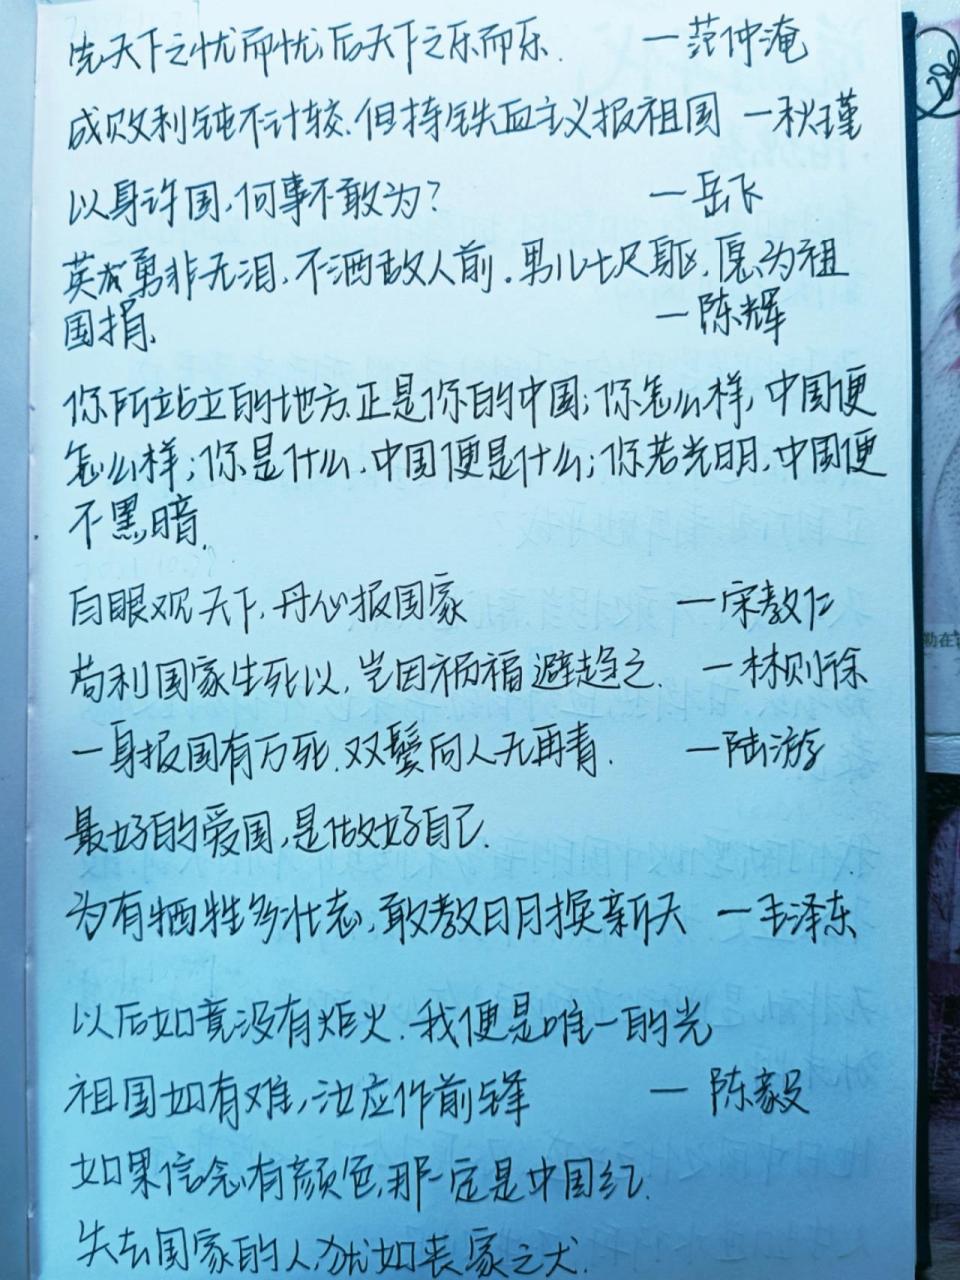 先天下之忧而忧,后天下之乐而乐. —范仲淹
成败利钝不计较.但持铁血主义报祖国 —秋瑾
以身许国,何事不敢为? —岳飞
英雄勇非无泪.不洒敌人前.男儿七尺躯,愿为祖
国捐. —陈辉
你所站立的地方.正是你的中国;你怎么样,中国便
怎么样;你是什么,中国便是什么;你若光明.中国便
不黑暗.
白眼观天下,丹心报国家 —宋教仁
苟利国家生死以,岂因祸福避趋之. —林则徐
一身报国有万死.双鬓向人无再青. —陆游
最好的爱国,是做好自己.
为有牺牲多壮志,敢教日月换新天 —毛泽东
以后如竟没有炬火.我便是唯一的光
祖国如有难,汝应作前锋 — 陈毅
如果信念有颜色,那一定是中国红.
失去国家的人,犹如丧家之犬.